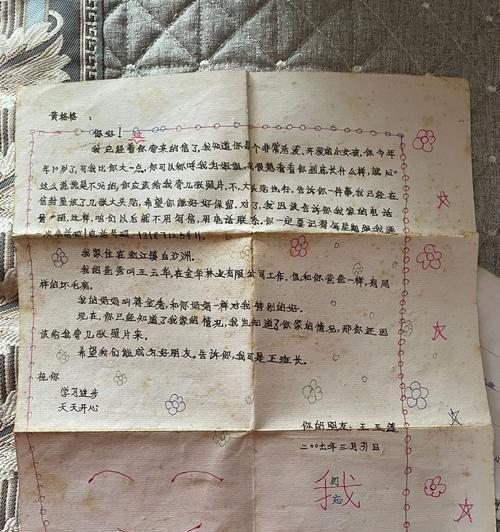 黄格格：
你好！
我已经看你寄来的信了，我知道你是个非常活泼、开朗的小女孩，你今年
年10岁了，可我比你大一点，你可以叫我为姐姐，我很想看看你到底长什么样，
这么说说是不泛的，你应该给我寄几张照片，不，大头贴也行。告诉你一件事，我已经在
信封里放了几张大头贴，希望你能好好保留，对了，我因该告诉你我家的电话
这样，咱们以后就不用写信，用电话联系。你一定要记得每星期给我
我家住在松江镇白沙洲。
我的爸爸叫王云华，在金华林业有限公司工作。他和你爸爸一样，有同
样的坏毛病。
我的妈妈叫蒋金秀，和你妈妈一样对我特别的好。
现在，你已经知道了我家的情况，我也知道了你家的情况，那你还因
该给我寄几张照片来。
希望我们能成为好朋友。告诉你，我可是正班长。
祝你
学习进步
天天开心
你的朋友：王
二〇〇七年三月31日
我
勿
忘